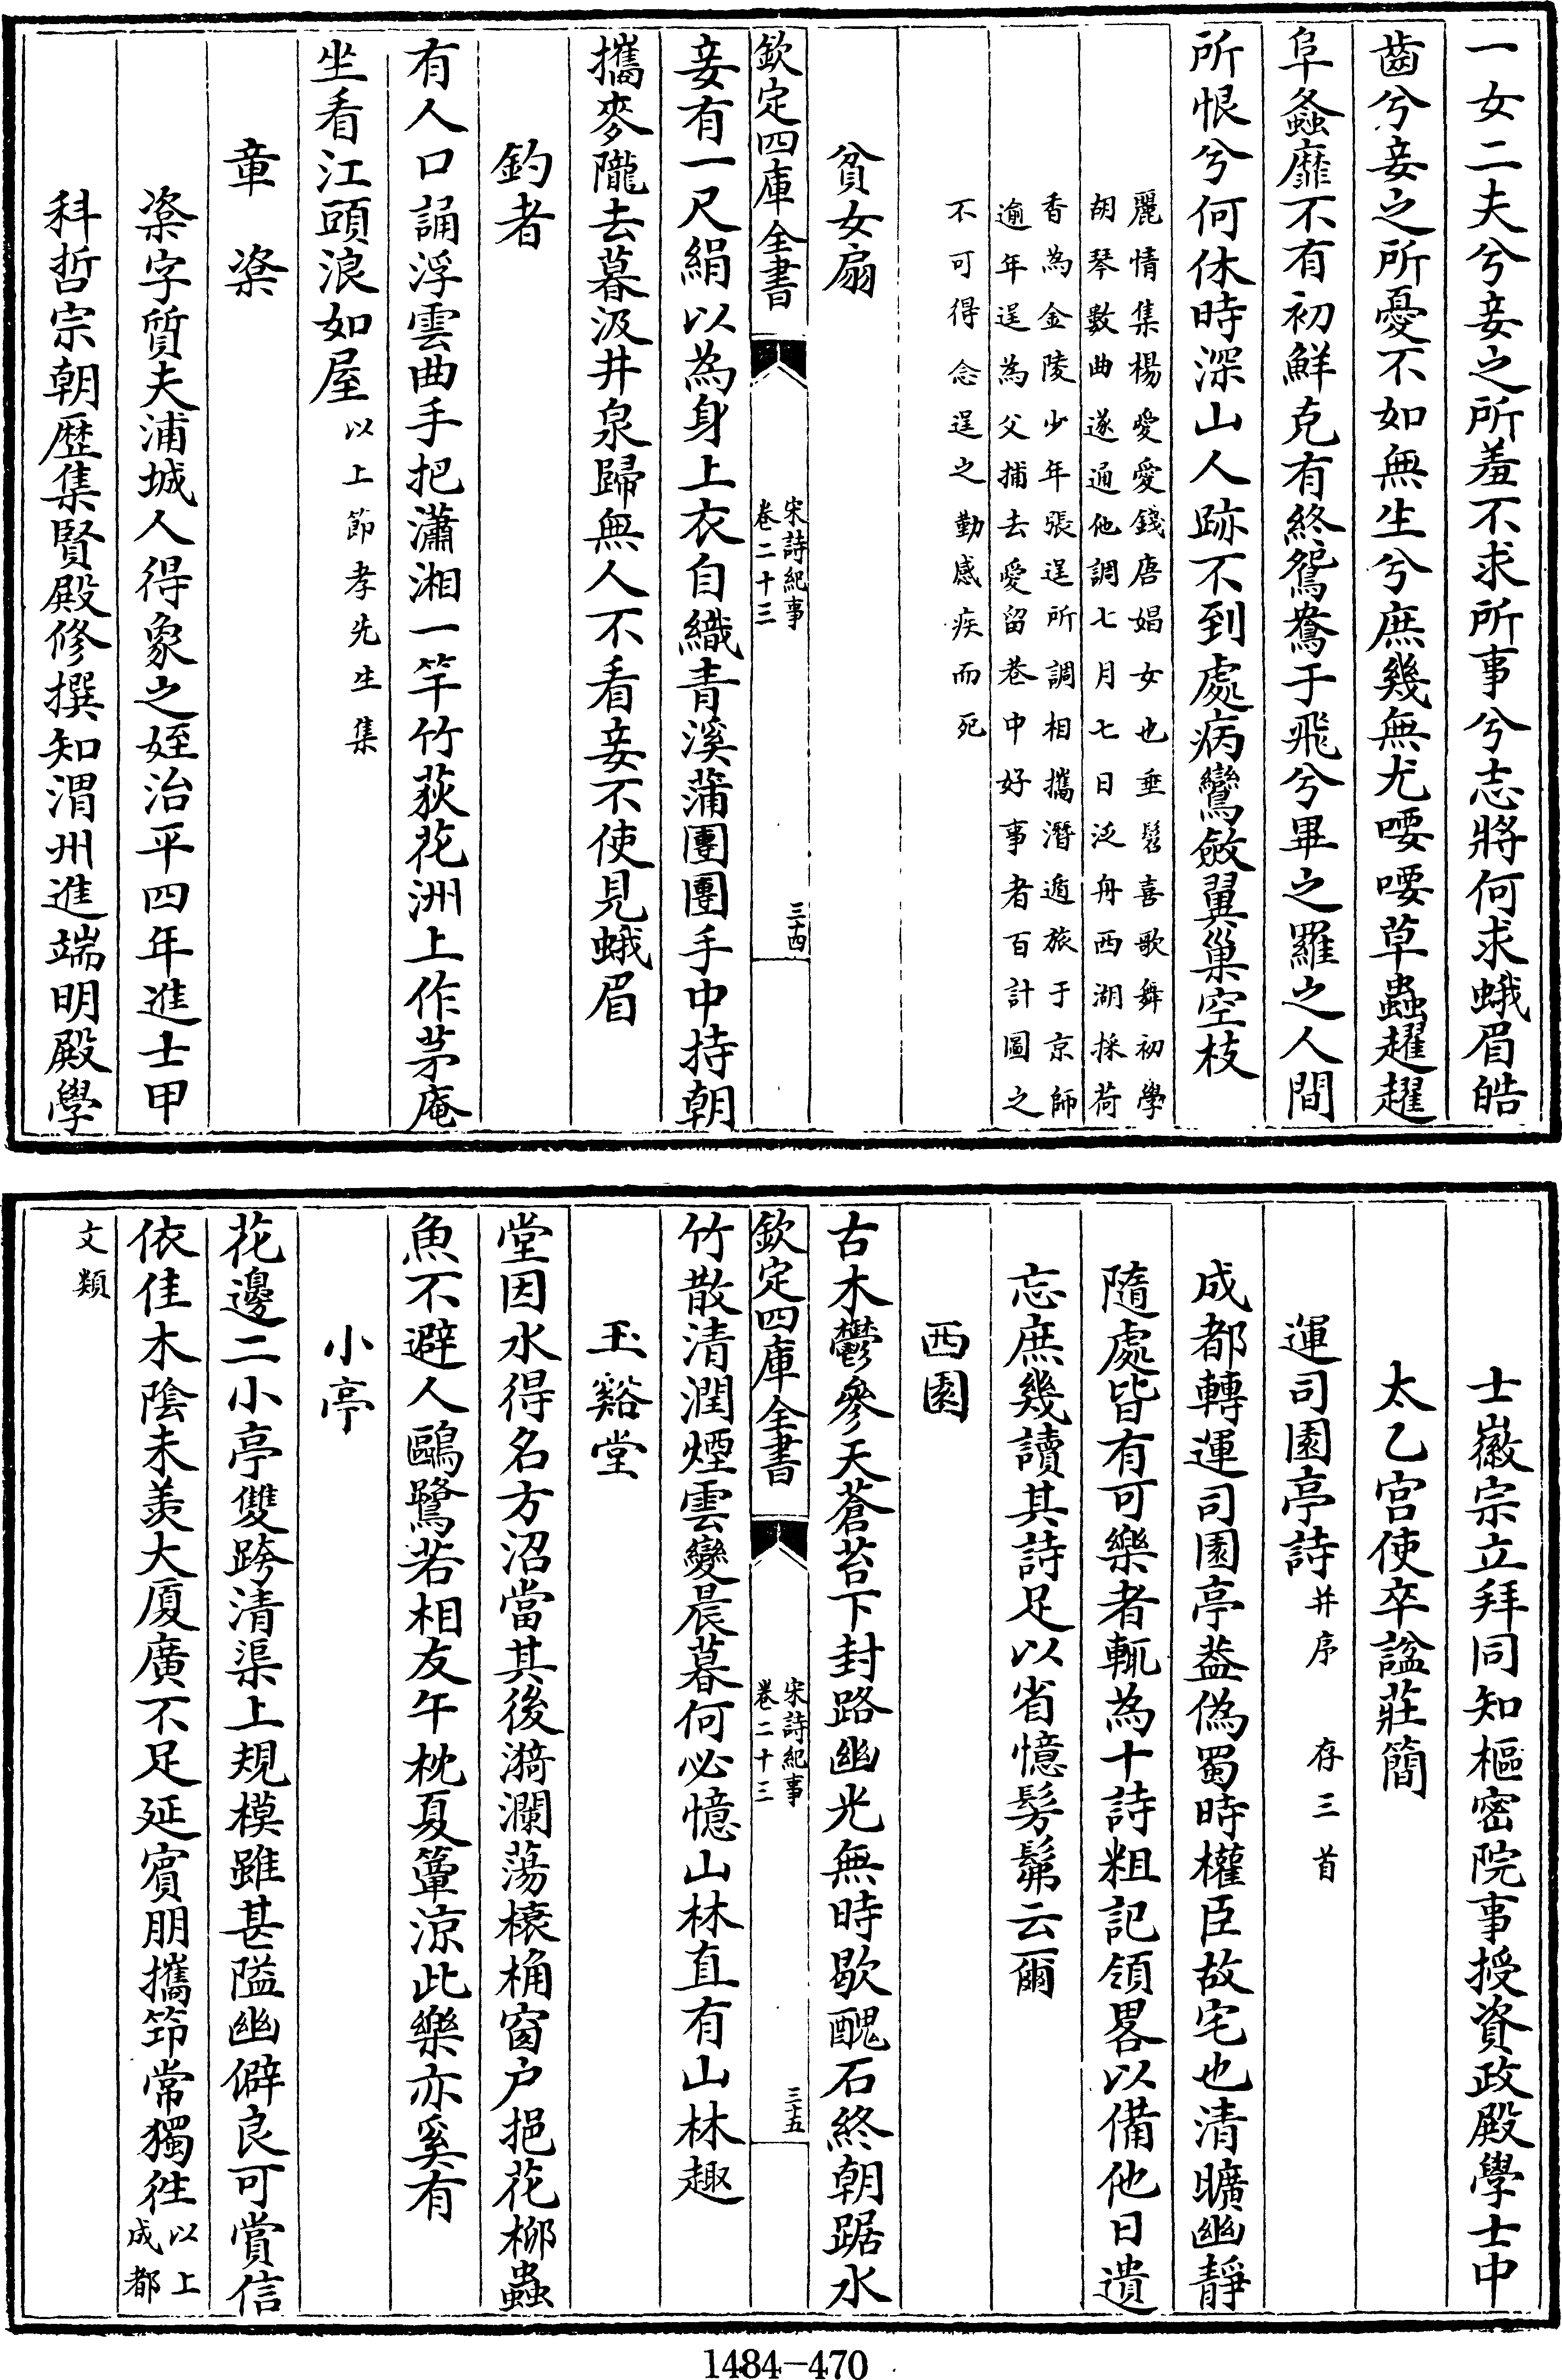 一女二夫兮妾之所羞不求所事兮志將何求蛾眉皓
齒兮妾之所憂不如無生兮庶幾無尤喓喓草蟲趯趯
阜螽靡不有初鮮克有終鴛鴦于飛兮畢之羅之人間
所恨兮何休時深山人跡不到處病鸞斂翼巢空枝
麗情集楊愛愛錢唐娼女也垂髫喜歌舞初學
胡琴數曲遂通他調七月七日泛舟西湖採荷
香為金陵少年張逞所調相攜潛遁旅于京師
逾年逞為父捕去愛留巷中好事者百計圖之
不可得念逞之勤感疾而死
貧女扇
欽定四庫全書
宋詩紀事
卷二十三
三十四
妾有一尺絹以為身上衣自織青溪蒲團團手中持朝
攜麥隴去暮汲井泉歸無人不看妾不使見蛾眉
釣者
有人口誦浮雲曲手把瀟湘一竿竹荻花洲上作茅庵
坐看江頭浪如屋以上節孝先生集
章楶
楶字質夫浦城人得象之姪治平四年進士甲
科哲宗朝歷集賢殿修撰知渭州進端明殿學
士徽宗立拜同知樞密院事授資政殿學士中
太乙宮使卒諡莊簡
運司園亭詩并序 存三首
成都轉運司園亭葢偽蜀時權臣故宅也清曠幽靜
隨處皆有可樂者輒為十詩粗記領畧以備他日遺
忘庶幾讀其詩足以省憶髣髴云爾
西園
古木鬱參天蒼苔下封路幽光無時歇醜石終朝踞水
欽定四庫全書
宋詩紀事
卷二十三
三十五
竹散清潤煙雲變晨暮何必憶山林直有山林趣
玉谿堂
堂因水得名方沼當其後漪瀾蕩榱桷窗户挹花柳蟲
魚不避人鷗鷺若相友午枕夏簟涼此樂亦奚有
小亭
花邊二小亭雙跨清渠上規模雖甚隘幽僻良可賞信
依佳木陰未羨大厦廣不足延賓朋攜筇常獨徃以上
成都
文類
1484-470